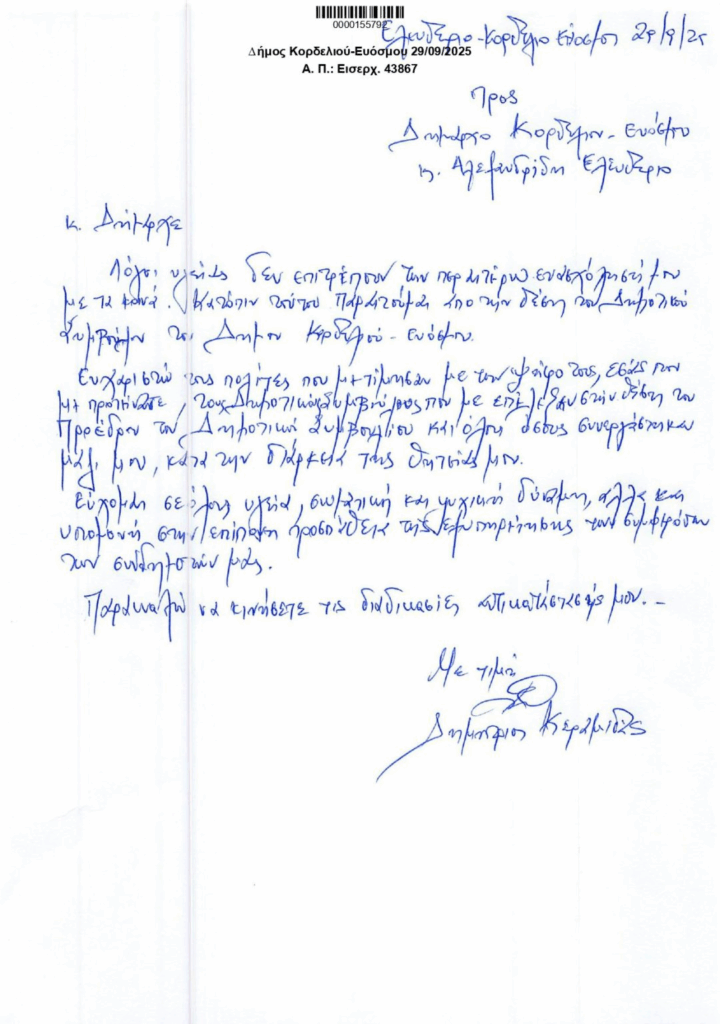 0000155792
Ελευθέριο-Κορδελιό Εύοσμο 29/9/25
Δήμος Κορδελιού-Ευόσμου 29/09/2025
Α. Π.: Εισερχ. 43867
Προς
Δήμαρχο Κορδελιου-Ευόσμου
κ. Αλεξανδρίδη Ελευθέριο
κ. Δήμαρχε
Λόγοι υγείας δεν επιτρέπουν την περαιτέρω ενασχόλησή μου
με τα κοινά. Κατόπιν τούτου παραιτούμαι από την θέση του Δημοτικού
Συμβούλου του Δήμου Κορδελιού-Ευόσμου.
Ευχαριστώ τους πολίτες που με τίμησαν με την ψήφο τους, εσάς που
με προτείνατε, τους Δημοτικούς Συμβούλους που με επέλεξαν στην θέση του
Προέδρου του Δημοτικού Συμβουλίου και όλους όσους συνεργάστηκαν
μαζί μου, κατά την διάρκεια της θητείας μου.
Εύχομαι σε όλους υγεία, σωματική και ψυχική δύναμη, αλλά και
υπομονή στην επίπονη προσπάθεια της εξυπηρέτησης των συμφερόντων
των συνδημοτών μας.
Παρακαλώ να κινήσετε τις διαδικασίες αντικατάστασής μου.-
Με τιμή
Δημήτριος Κεραμιδάς